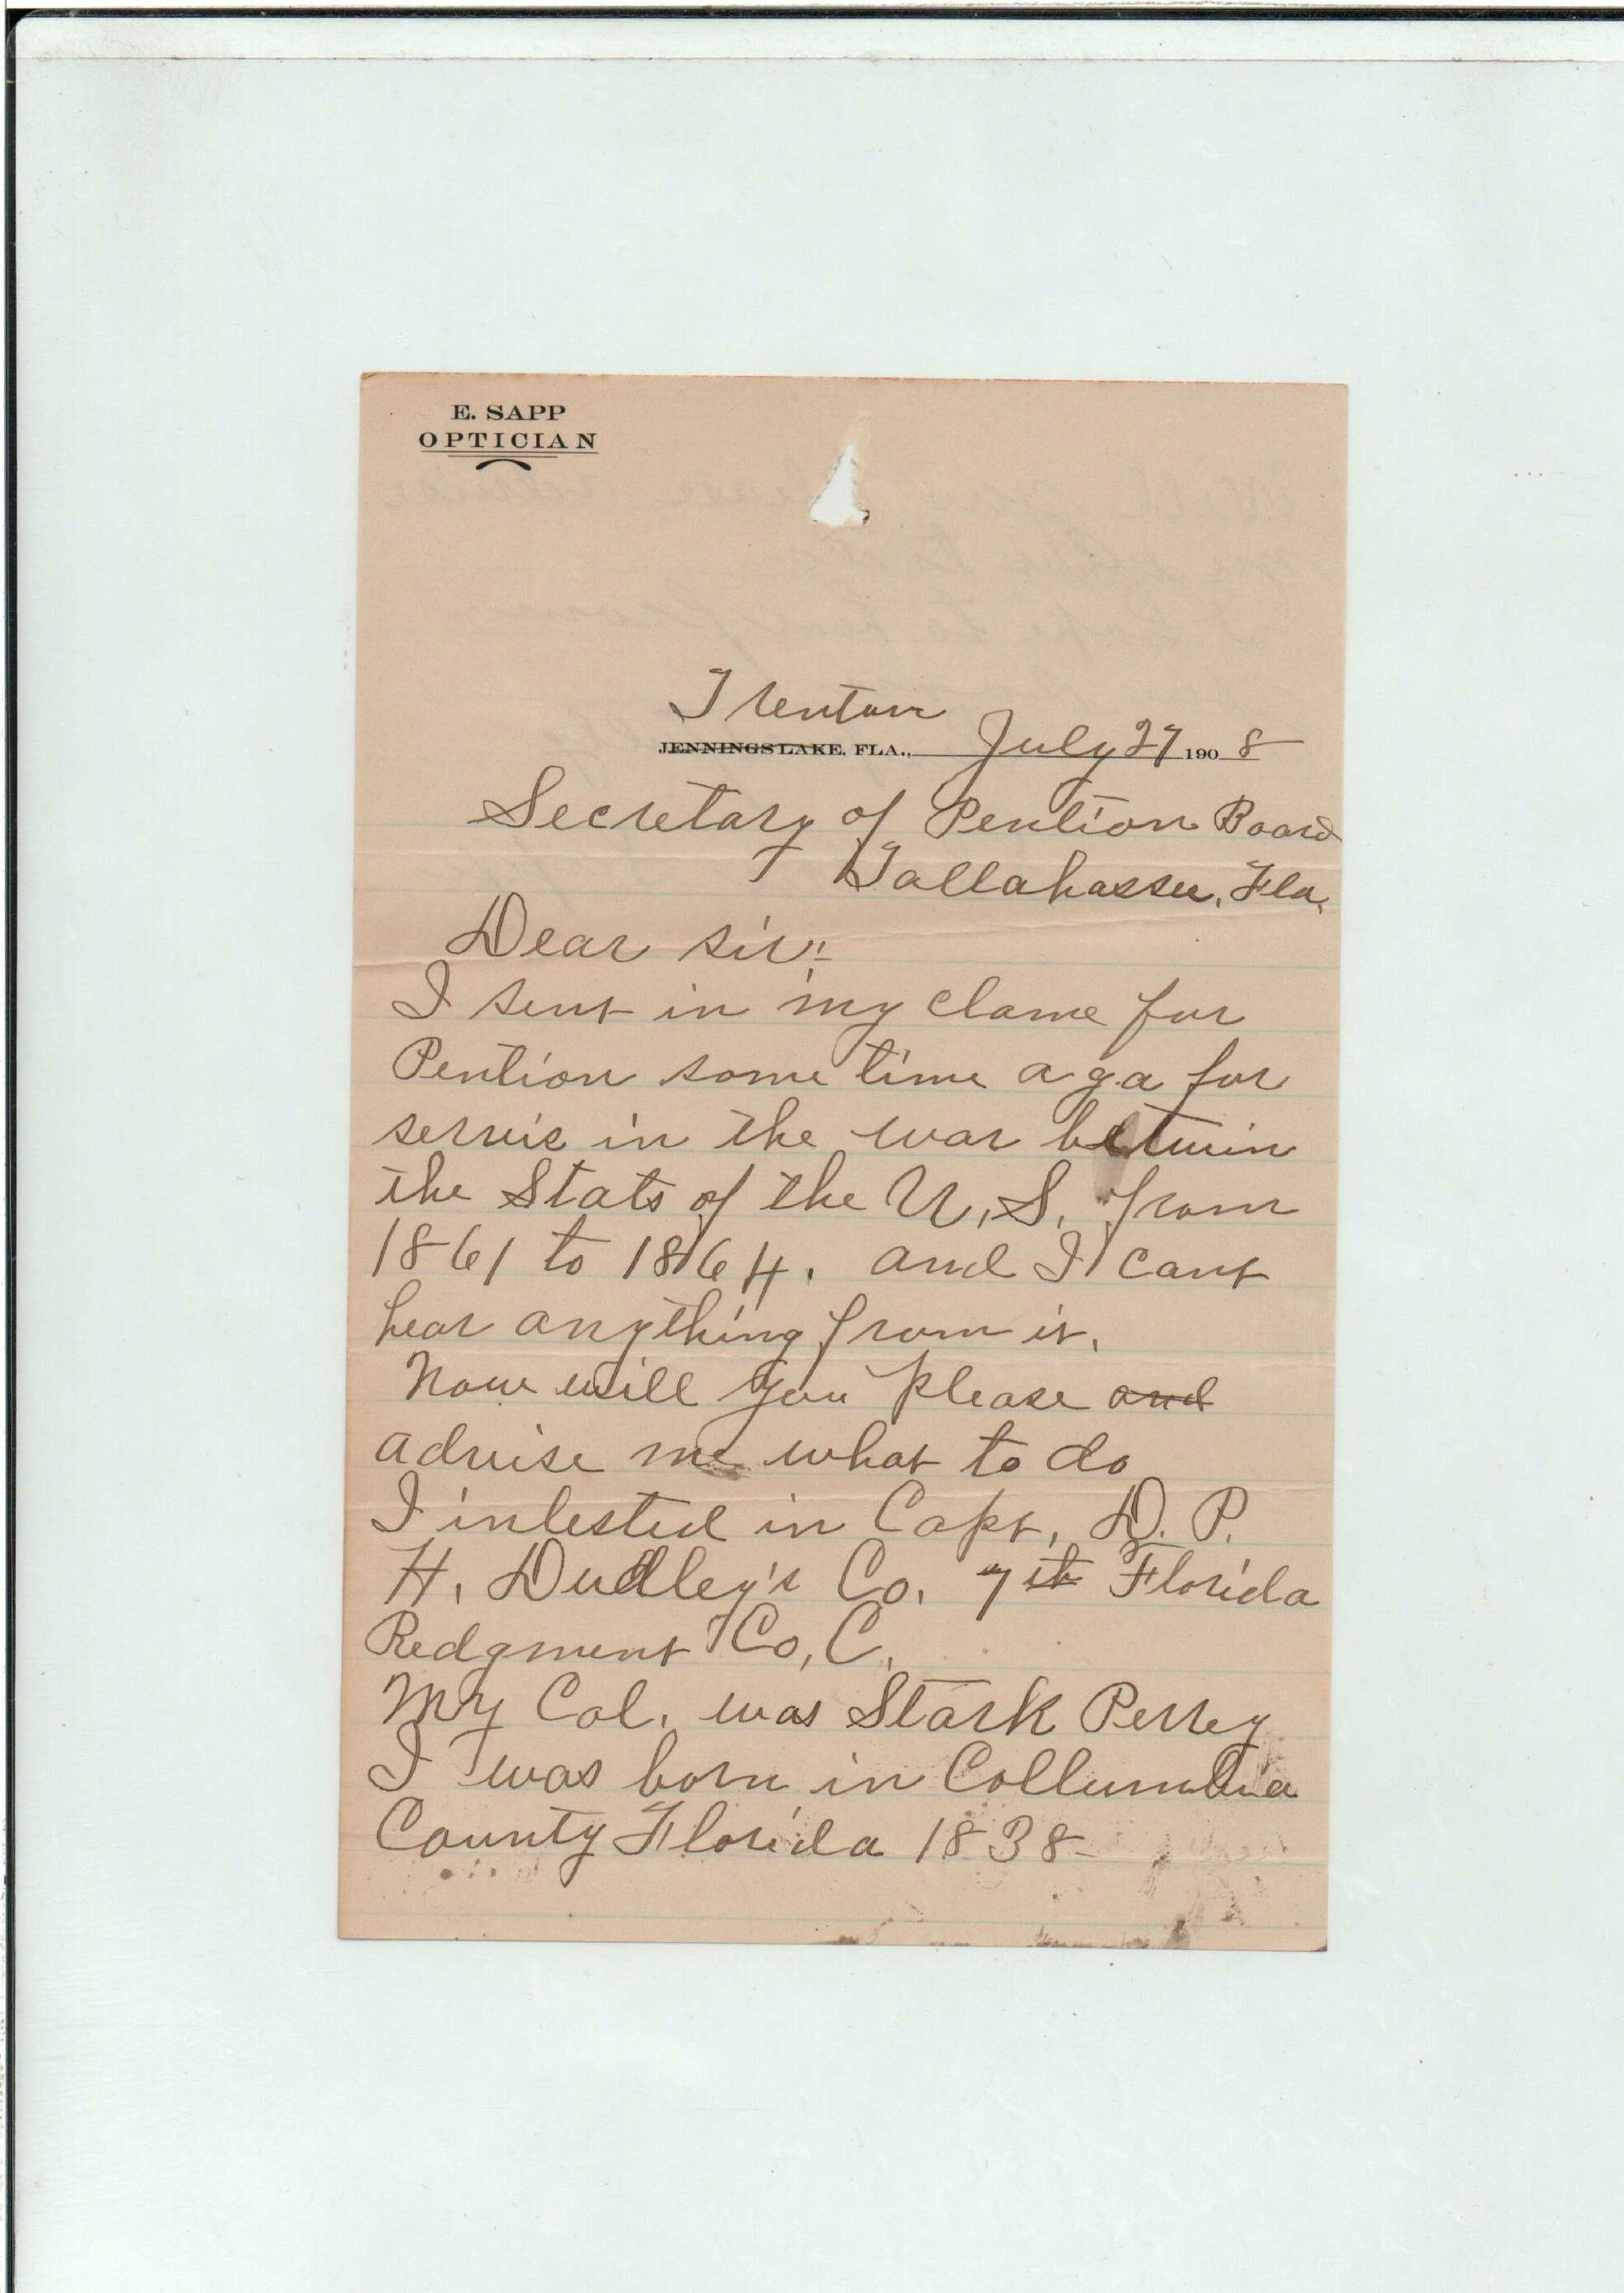 E. SAPP
OPTICIAN
Trenton
JENNINGS LAKE, FLA., July 27 1908
Secretary of Pention Board
Tallahassee, Fla.
Dear sir:
I sent in my clame for
Pention some time aga for
servis in the war betwin
the Stats of the U.S. from
1861 to 1864. and I cant
hear anything from it.
Now will you please and
advise me what to do
I inlested in Capt. D. P.
H. Dudley's Co. 7th Florida
Redgment Co, C.
My Col. was Stark Perrey
I was born in Collumbia
County Florida 1838